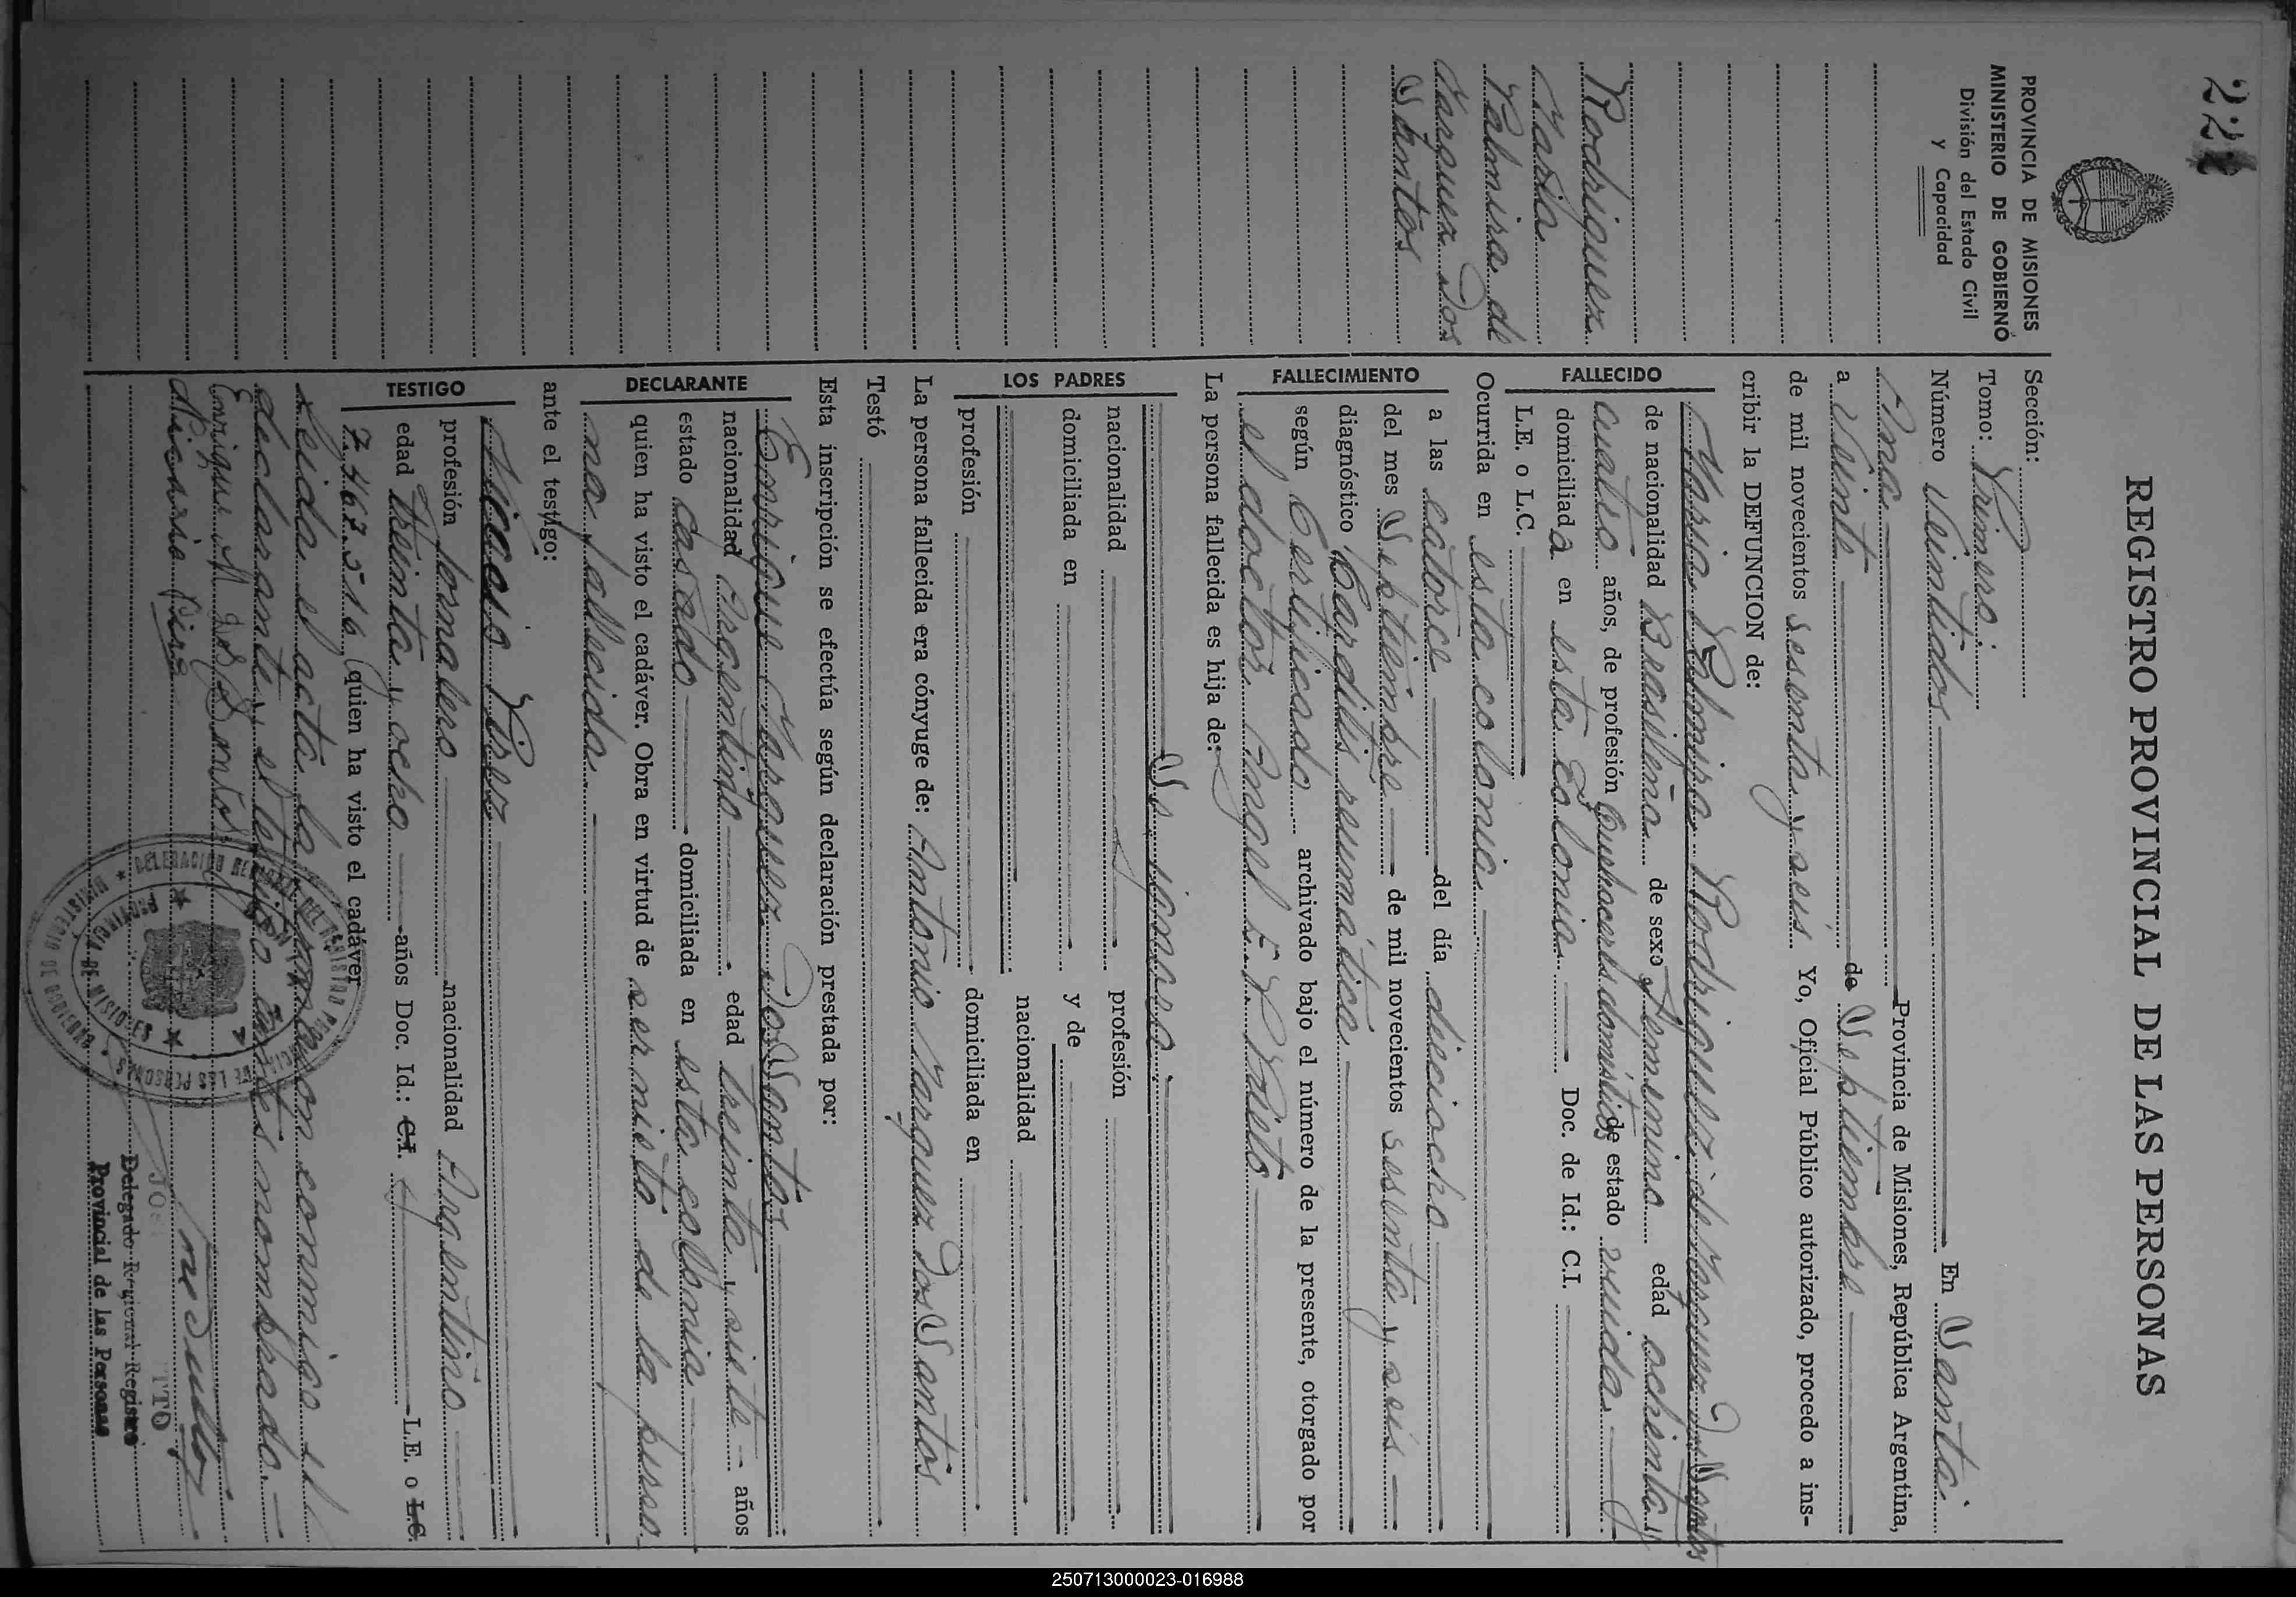 22
PROVINCIA DE MISIONES
MINISTERIO DE GOBIERNO
División del Estado Civil
y Capacidad
Rodriguez
Maria
Palmira de
Marquez Dos
Santos
REGISTRO PROVINCIAL DE LAS PERSONAS
Sección:
Tomo: Primero
Número Veintidos En Santa
Ana Provincia de Misiones, República Argentina,
a veinte de Septiembre
de mil novecientos sesenta y seis Yo, Oficial Público autorizado, procedo a ins-
cribir la DEFUNCION de:
FALLECIDO
Maria Palmira Rodriguez de Marquez Dos Santos
de nacionalidad Brasileña de sexo femenino edad ochenta y
cuatro años, de profesión Quehaceres domésticos de estado viuda
domiciliada en esta Colonia Doc. de Id.: C.I.
L.E. o L.C.
FALLECIMIENTO
Ocurrida en esta colonia
a las catorce del día dieciocho
del mes Septiembre de mil novecientos sesenta y seis
diagnóstico Carditis reumática
según Certificado archivado bajo el número de la presente, otorgado por
el doctor Angel E. Prieto
La persona fallecida es hija de:
LOS PADRES
Se ignora
nacionalidad profesión
domiciliada en y de
nacionalidad
profesión domiciliada en
La persona fallecida era cónyuge de: Antonio Marquez Dos Santos
Testó
Esta inscripción se efectúa según declaración prestada por:
DECLARANTE
Enrique Marquez Dos Santos
nacionalidad Argentino edad treinta y siete años
estado casado domiciliada en esta colonia
quien ha visto el cadáver. Obra en virtud de ser nieto de la perso-
na fallecida
ante el testigo:
TESTIGO
Nicasio Pirez
profesión Jornalero nacionalidad Argentino
edad treinta y ocho años Doc. Id.: C.I. L.E. o L.C.
7.467.516 quien ha visto el cadáver
Leida el acta la firman conmigo el
declarante y el testigo antes nombrado.
Enrique M dos Santos
Nicasio Pire
DELEGACION DEL REGISTRO PROVINCIAL DE LAS PERSONAS
MINISTERIO DE GOBIERNO
PROVINCIA DE MISIONES
Delegado Regional Registro
Provincial de las Personas
250713000023-016988